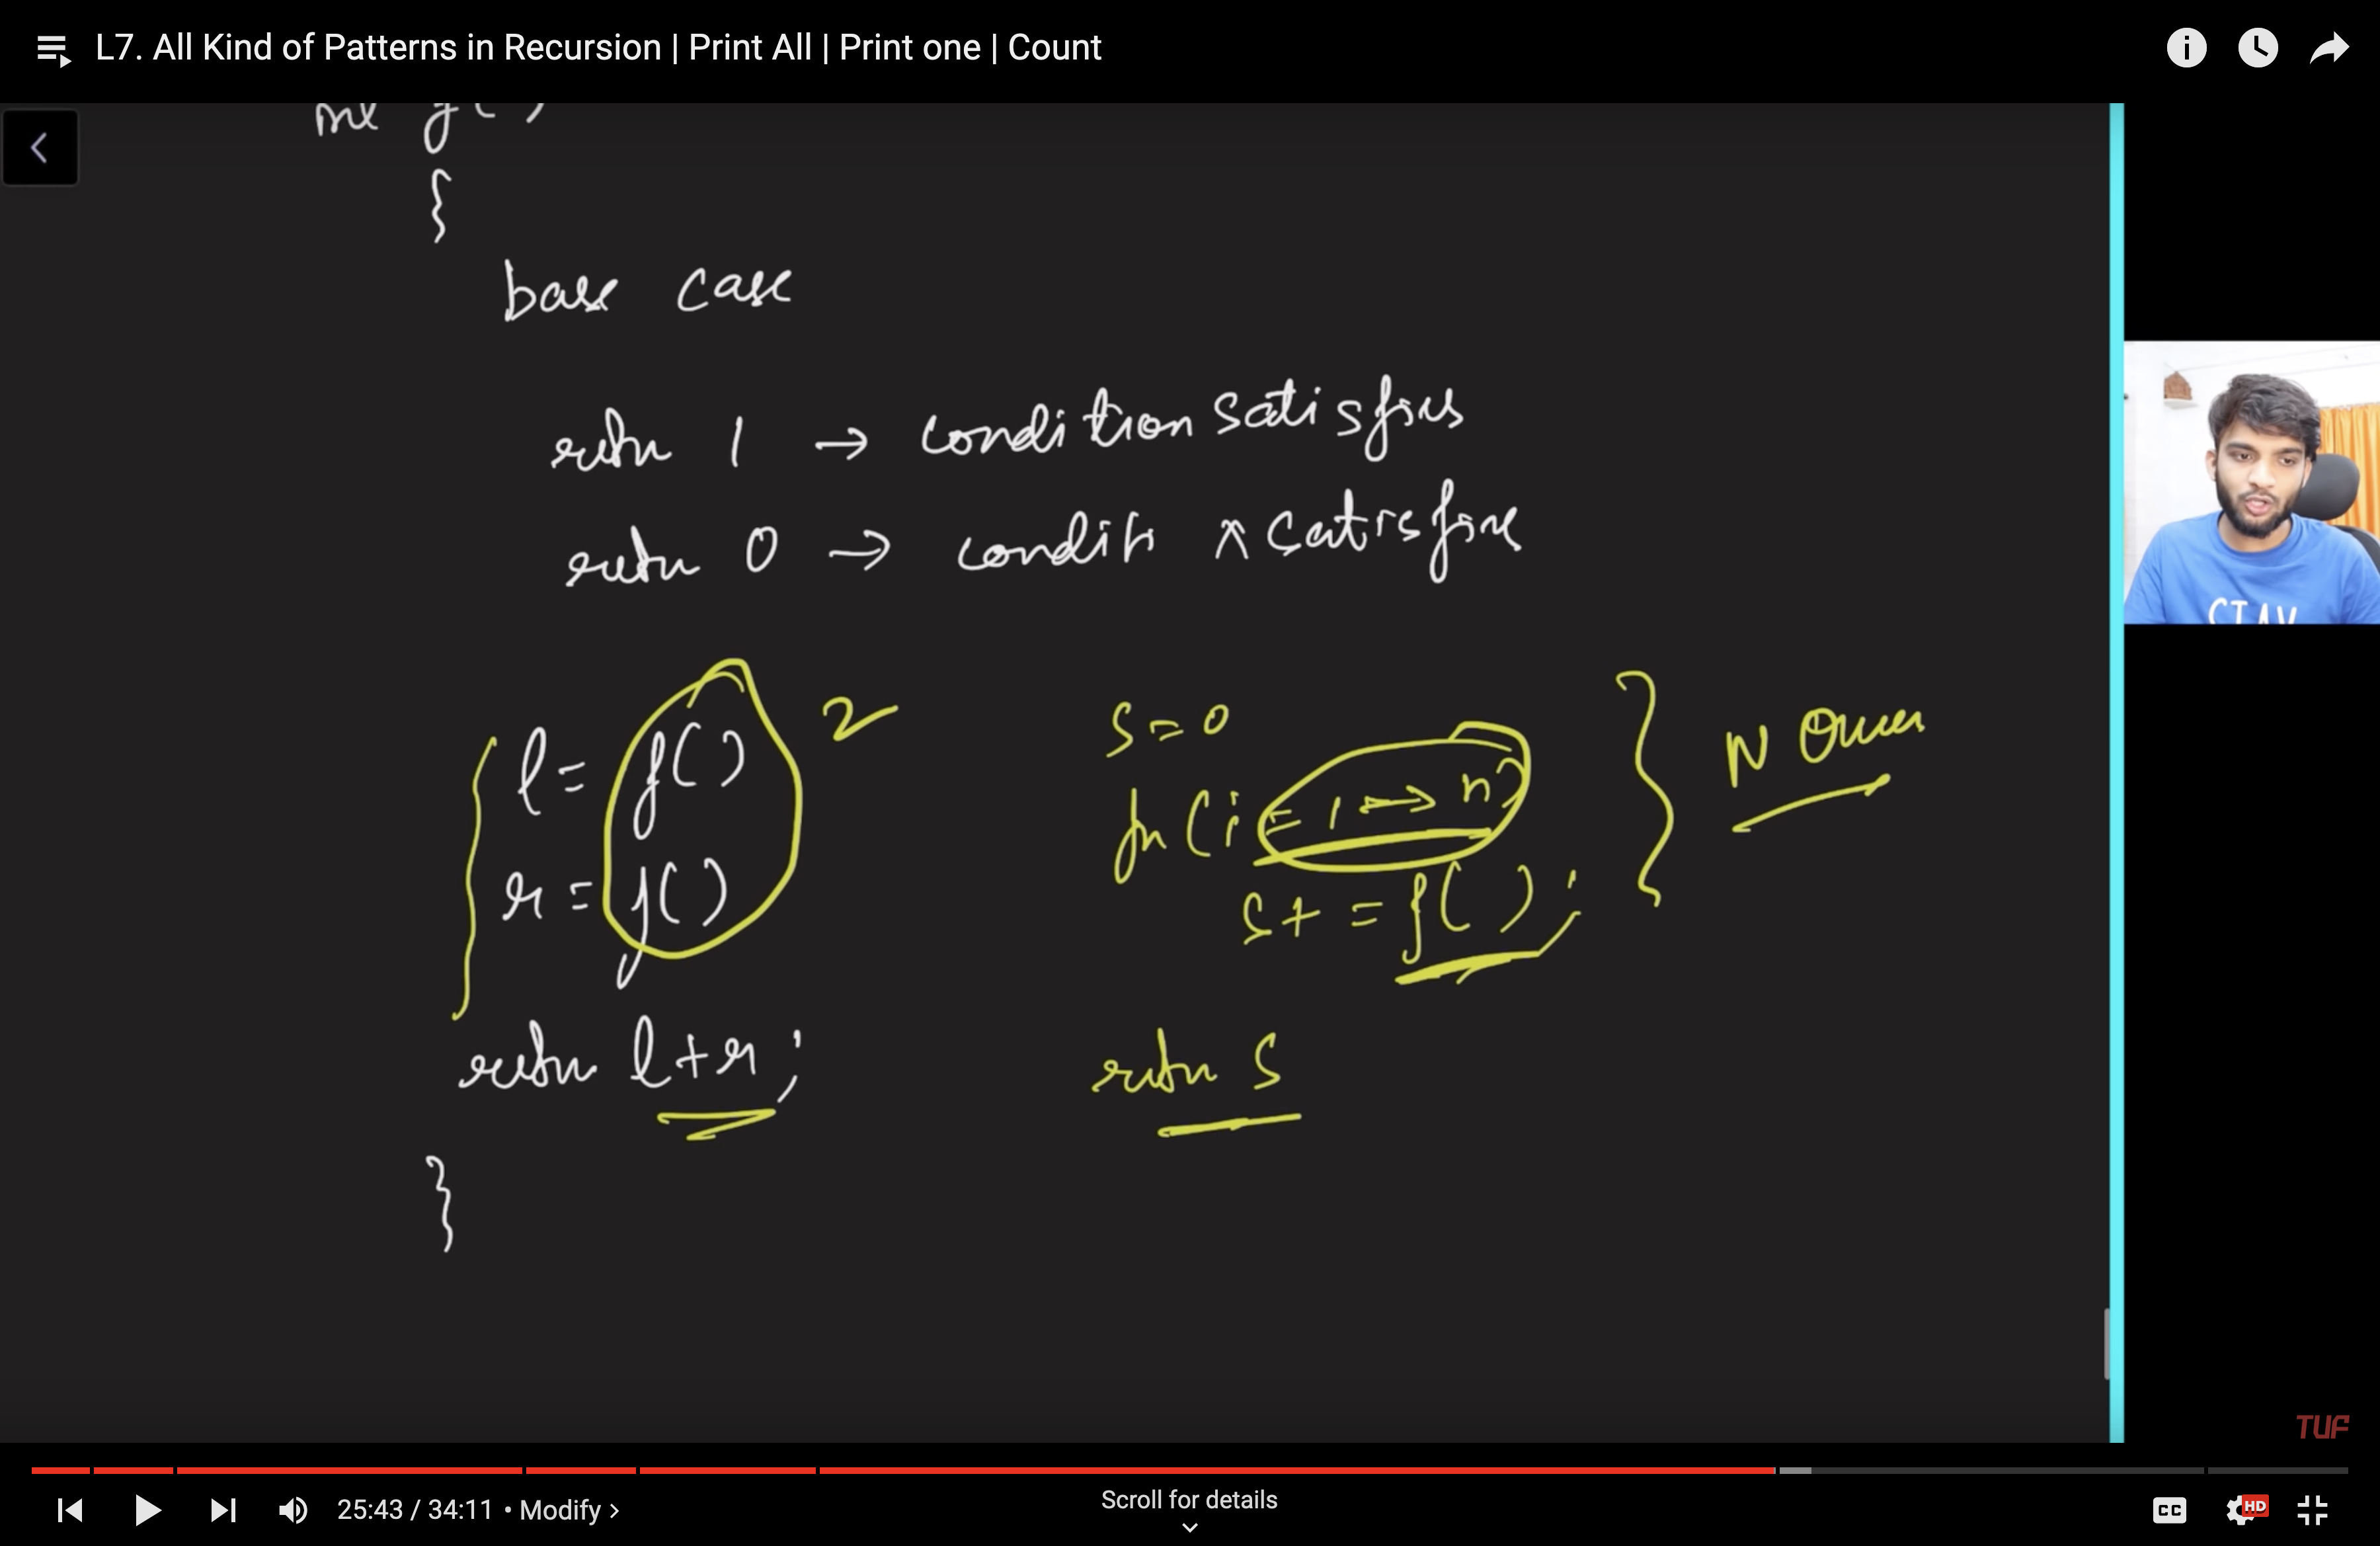 L7. All Kind of Patterns in Recursion | Print All | Print one | Count
int f( )
{
base case
return 1 → condition satisfies
return 0 → condit x satisfies
l = f() 2
r = f()
return l+r ;
s = 0
for (i = 1 → n)
s + = f( ) ;
N
return s
}
STAY
TUF
25:43 / 34:11 • Modify >
Scroll for details
CC
HD